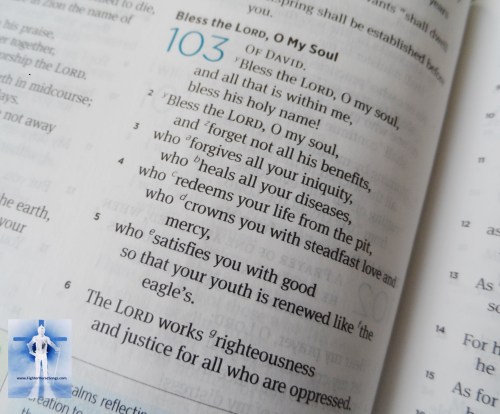 to died,
in Zion the name of
his praise,
together,
worship the LORD.
in midcourse;
days.
not away
the earth,
your
spring shall be established before
you.
Bless the LORD, O My Soul
103
OF DAVID.
Bless the LORD, O my soul,
and all that is within me,
bless his holy name!
2 Bless the LORD, O my soul,
and forget not all his benefits,
3 who forgives all your iniquity,
who heals all your diseases,
4 who redeems your life from the pit,
who crowns you with steadfast love and
mercy,
5 who satisfies you with good
so that your youth is renewed like the
eagle's.
6 The LORD works righteousness
and justice for all who are oppressed.
creation to
12 as
13 As
14 For h
he
15 As for